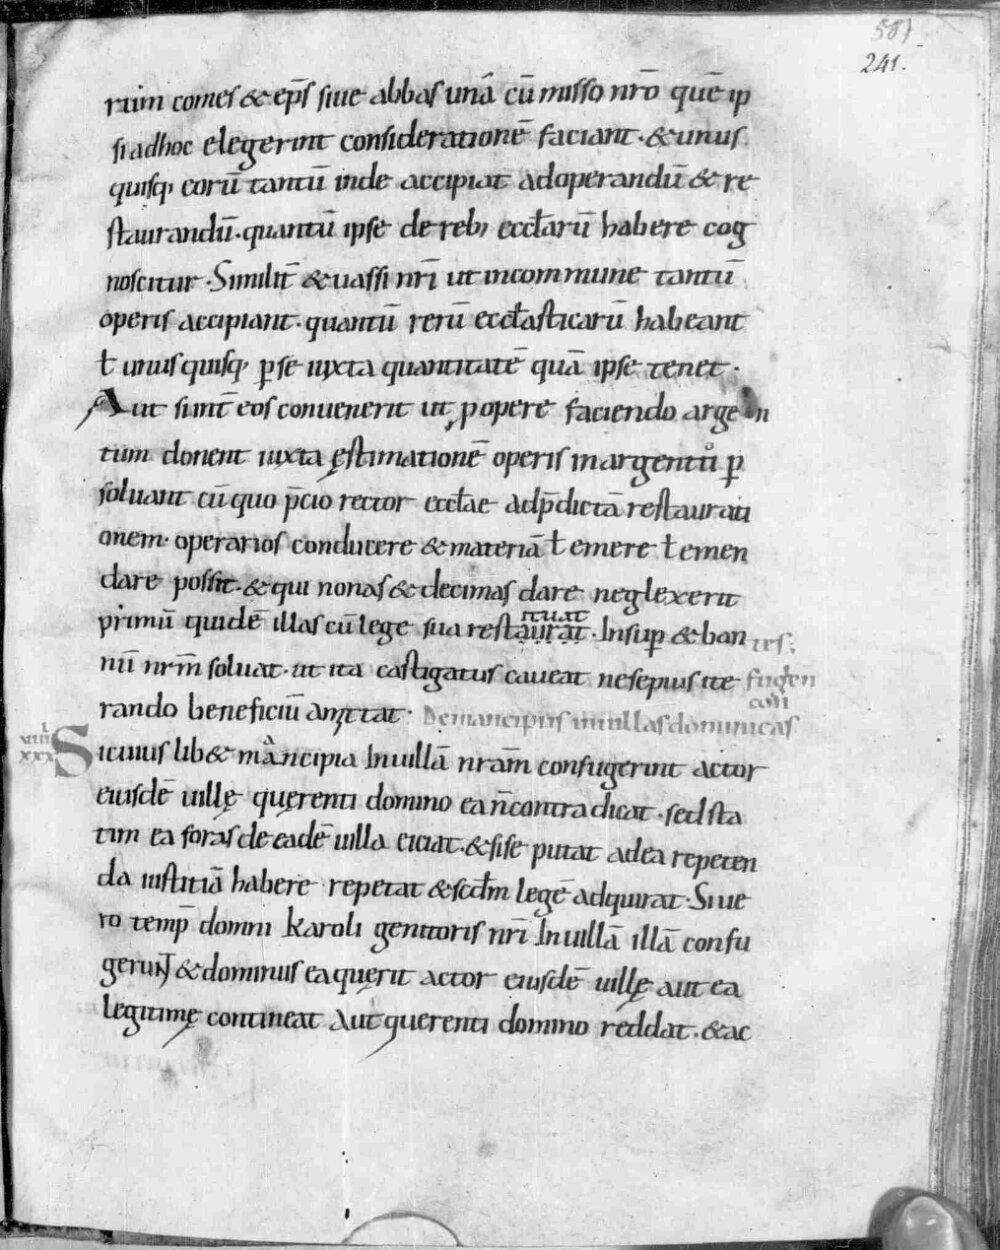 507
241.
rum comes & ep̄s siue abbas unā cū misso nr̄o quē ip
si adhoc elegerint considerationē faciant · & unus
quisq; eorū tantū inde accipiat adoperandū & re
staurandū · quantū ipse de reb; eccłarū habere cog
noscitur · Similit̄ & uassi nr̄i ut incommune tantū
operis accipiant · quantū rerū eccłasticarū habeant
ł unusquisq; ꝑse iuxta quantitatē quā ipse tenet ·
Aut sunt̄ eos conuenerit ut ꝓopere faciendo argen
tum donent iuxta ęstimationē operis inargentů ꝑ
soluant cū quo p̄cio rector eccłae adp̄dictā restaurati
onem · operarios conducere & materiā ł emere ł emen
dare possit · & qui nonas & decimas dare neglexerit
primū quidē illas cū lege sua restaurat · Insuꝑ & ban
tuat
nū nr̄m soluat · ut ita castigatus caueat ne sepius ite
rando beneficiū amittat · De mancipiis inuillas dominicas
fugien
tes;
XXX VIIII
Sicuius lib & mancipia Inuillā nr̄am confugerint actor
eiusdē uillę querenti domino ea n̄ contradicat · sed sta
tim ea foras de eadē uilla eiciat · & sise putat adea repeten
da iustitiā habere repetat & scđm legē adquirat · Si ue
ro temp̄ domni karoli genitoris nr̄i Inuillā illā confu
gerunt & dominus ea quęrit actor eiusdē uillę aut ea
legitimę contineat Aut querenti domino reddat · & ac